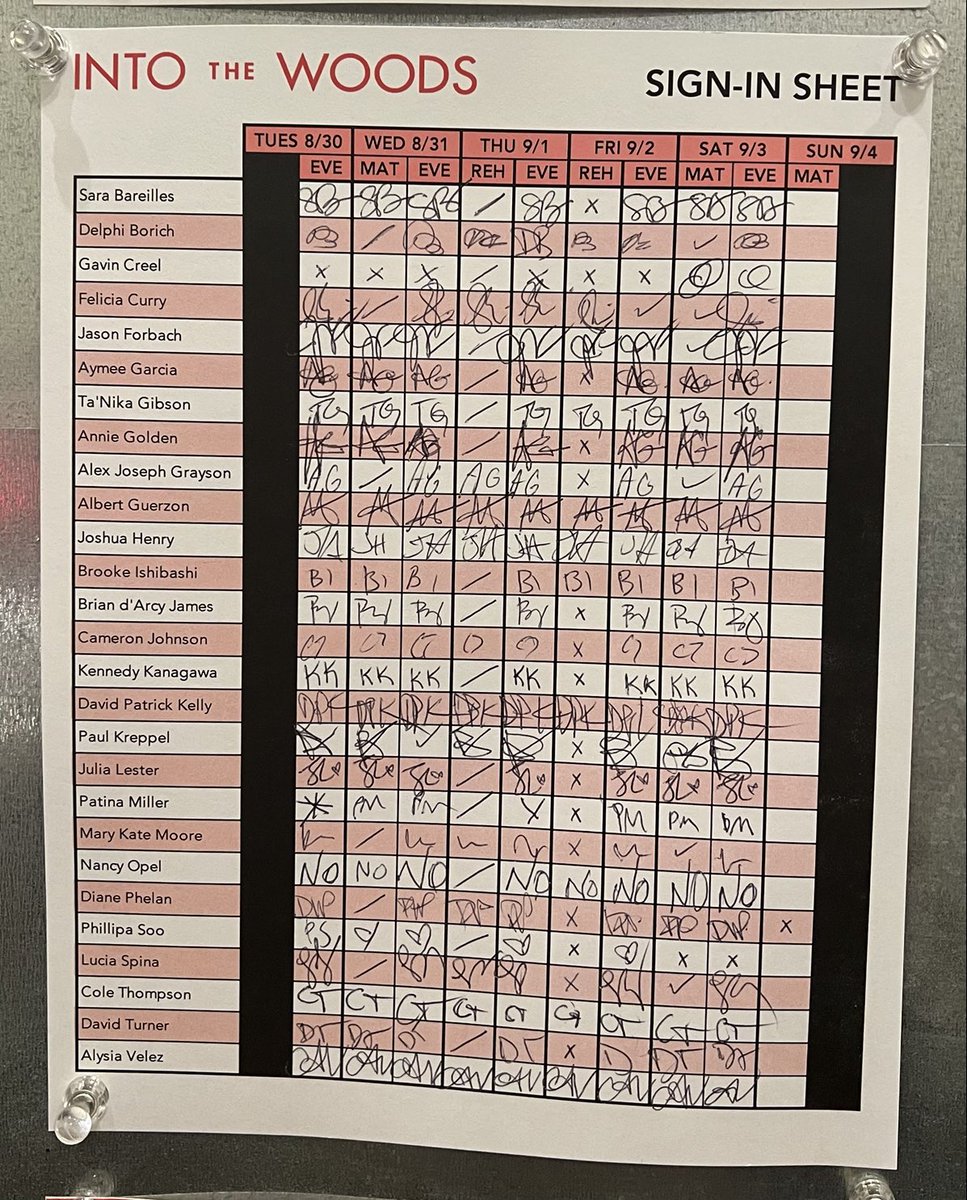 INTO THE WOODS SIGN-IN SHEET
TUES 8/30 WED 8/31 THU 9/1 FRI 9/2 SAT 9/3 SUN 9/4
EVE MAT EVE REH EVE REH EVE MAT EVE MAT
Sara Bareilles SB SB SB / SB x SB SB SB
Delphi Borich / DB ✓
Gavin Creel x x x / x x x
Felicia Curry / ✓
Jason Forbach / ✓
Aymee Garcia AG AG AG / AG x AG AG AG
Ta'Nika Gibson TG TG TG / TG TG TG TG TG
Annie Golden AG AG AG / AG x AG AG AG
Alex Joseph Grayson AG / AG AG AG x AG ✓ AG
Albert Guerzon
Joshua Henry JH JH JH JH JH JH JH
Brooke Ishibashi BI BI BI / BI BI BI BI BI
Brian d'Arcy James / x
Cameron Johnson CJ CJ CJ CJ CJ x CJ CJ CJ
Kennedy Kanagawa KK KK KK / KK x KK KK KK
David Patrick Kelly DPK DPK DPK DPK DPK DPK DPK DPK DPK
Paul Kreppel ✓ x
Julia Lester JL JL JL / JL x JL JL JL
Patina Miller PM PM / x x PM PM PM
Mary Kate Moore / x ✓
Nancy Opel NO NO NO / NO NO NO NO NO
Diane Phelan DWP / x x
Phillipa Soo PS / x x x
Lucia Spina / x ✓
Cole Thompson CT CT CT CT CT CT CT CT CT
David Turner DT DT DT / DT x D DT DT
Alysia Velez AV AV AV AV AV AV AV AV AV